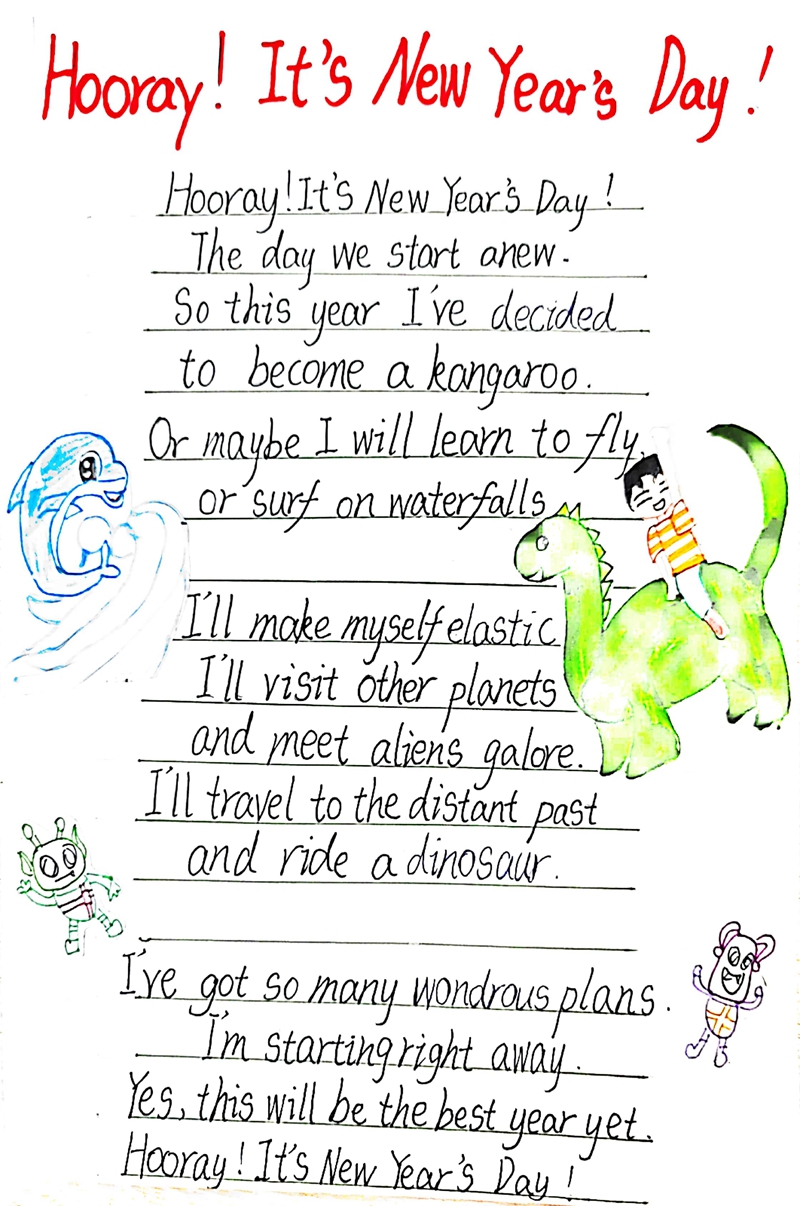 Hooray! It's New Year's Day!
Hooray! It's New Year's Day!
The day we start anew.
So this year I've decided
to become a kangaroo.
Or maybe I will learn to fly,
or surf on waterfalls
I'll make myself elastic
I'll visit other planets
and meet aliens galore.
I'll travel to the distant past
and ride a dinosaur.
I've got so many wondrous plans.
I'm starting right away.
Yes, this will be the best year yet.
Hooray! It's New Year's Day!